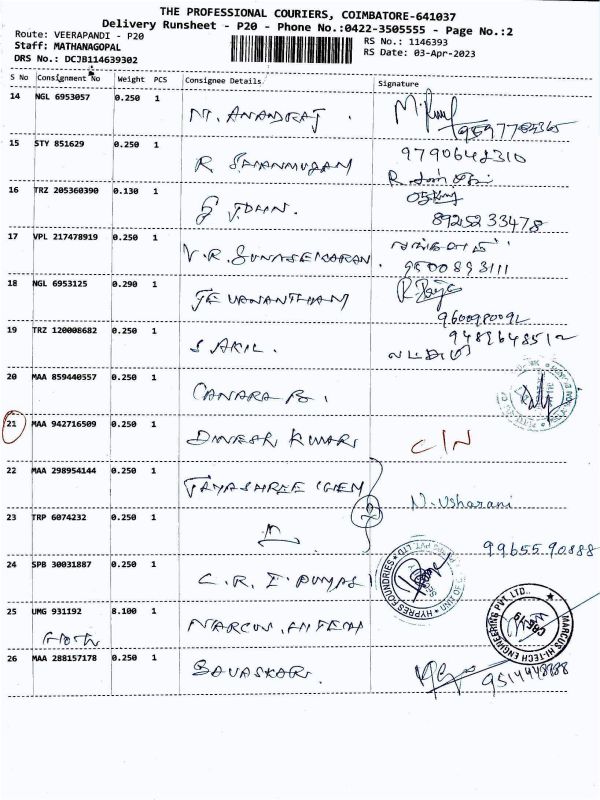 THE PROFESSIONAL COURIERS, COIMBATORE-641037
Delivery Runsheet - P20 - Phone No.:0422-3505555 - Page No.:2
Route: VEERAPANDI - P20
Staff: MATHANAGOPAL
DRS No.: DCJB114639302
RS No.: 1146393
RS Date: 03-Apr-2023
S No Consignment No Weight PCS Consignee Details Signature
14 NGL 6953057 0.250 1 M. ANANDRAJ.
15 STY 851629 0.250 1 R SHANMUGAM 9790642310
16 TRZ 205360390 0.130 1 JOHN. 8925233478
17 VPL 217478919 0.250 1 V.R. GUNASEKARAN. 9500893111
18 NGL 6953125 0.290 1 JEVANANTHAM R. Raja
9600980092
19 TRZ 120008682 0.250 1 S AKIL.
20 MAA 859440557 0.250 1 CANARA B.
21 MAA 942716509 0.250 1 DINESH KUMAR C/N
22 MAA 298954144 0.250 1 JAYASHREE CHEM N. Usharani
23 TRP 6074232 0.250 1 99655.90888
24 SPB 30031887 0.250 1 C.R.I. PUMPS HYPRES FOUNDRIES
25 UMG 931192 8.100 1 MARCUS HITECH MARCUS HI-TECH ENGINEERING PVT. LTD.. CBE-19
26 MAA 288157178 0.250 1